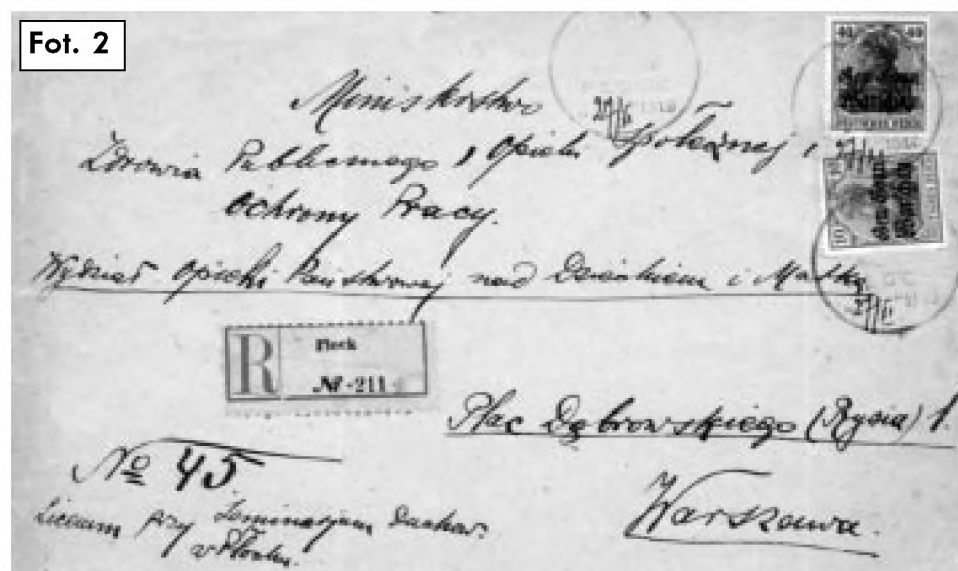 Fot. 2
Ministerstwo
Zdrowia Publicznego, Opieki Społecznej i
Ochrony Pracy.
Wydział Opieki Państwowej nad Dzieckiem i Matką
R
Plock
№ -211
Plac Dąbrowskiego (Rysia) 1.
Warszawa.
№ 45
Liceum przy Seminarjum Duchow.
w Płocku.
27/II
27/II